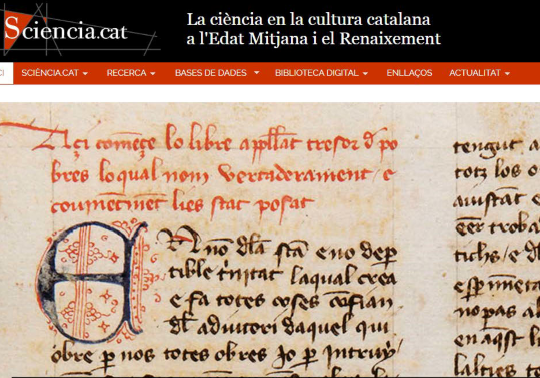 Sciencia.cat
La ciència en la cultura catalana
a l'Edat Mitjana i el Renaixement
CI SCIÈNCIA.CAT RECERCA BASES DE DADES BIBLIOTECA DIGITAL ENLLAÇOS ACTUALITAT
Açi comẽçe lo libre apłłat tresor đ po
bres lo qual nom vertaderament e
couinẽtment lies stat posat
En nõ đla sta e no dep
tible t'nitat laqual crea
e fa totes coses cõfian
đl adiutori daquel qui
obre p nos totes obres Jo p
tengut a
totz los o
auistat e
tichs e đl
no pas al
en aqst li